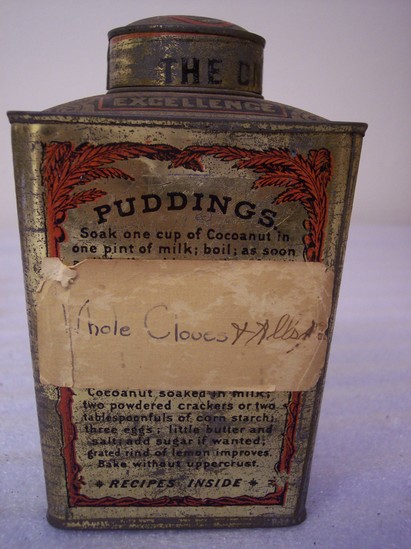 THE
EXCELLENCE
PUDDINGS.
Soak one cup of Cocoanut in
one pint of milk; boil; as soon
Whole Cloves &
Cocoanut soaked in milk;
two powdered crackers or two
tablespoonfuls of corn starch;
three eggs; little butter and
salt; add sugar if wanted;
grated rind of lemon improves.
Bake without uppercrust.
RECIPES INSIDE